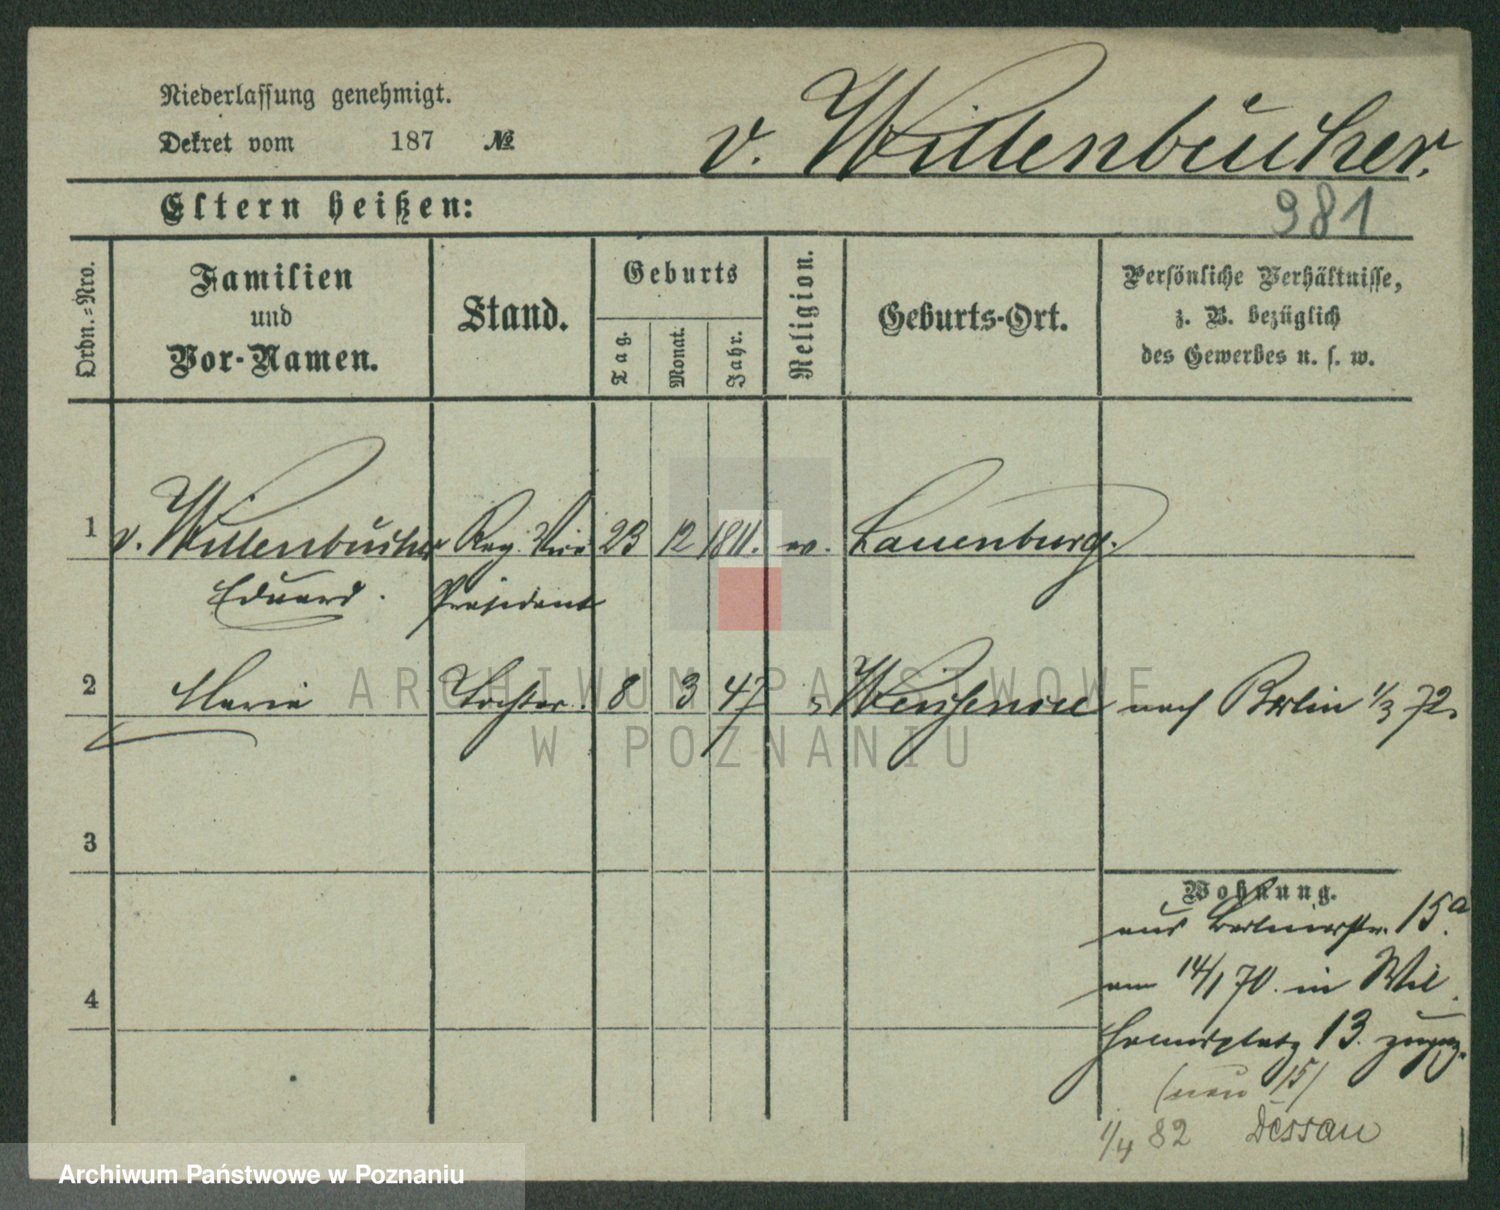 Niederlassung genehmigt.
Dekret vom 187 №
v. Willenbücher.
Eltern heißen:
981
Ordn.-Nro.
Familien
und
Vor-Namen.
Stand.
Geburts
Tag.
Monat.
Jahr.
Religion.
Geburts-Ort.
Persönliche Verhältnisse,
z. B. bezüglich
des Gewerbes u. s. w.
1 v. Willenbücher Reg. Vice 23 12 1811. ev. Lauenburg.
Eduard. Präsident
2 Marie Tochter. 8 3 47 nach Berlin 1/3 72.
ARCHIWUM PAŃSTWOWE
W POZNANIU
3
Wohnung.
aus Berlinerstr. 15a.
4
am 14/1 70. in Wil
helmsplatz 13. zugez.
(neu 15)
1/4 82 Dessau
Archiwum Państwowe w Poznaniu